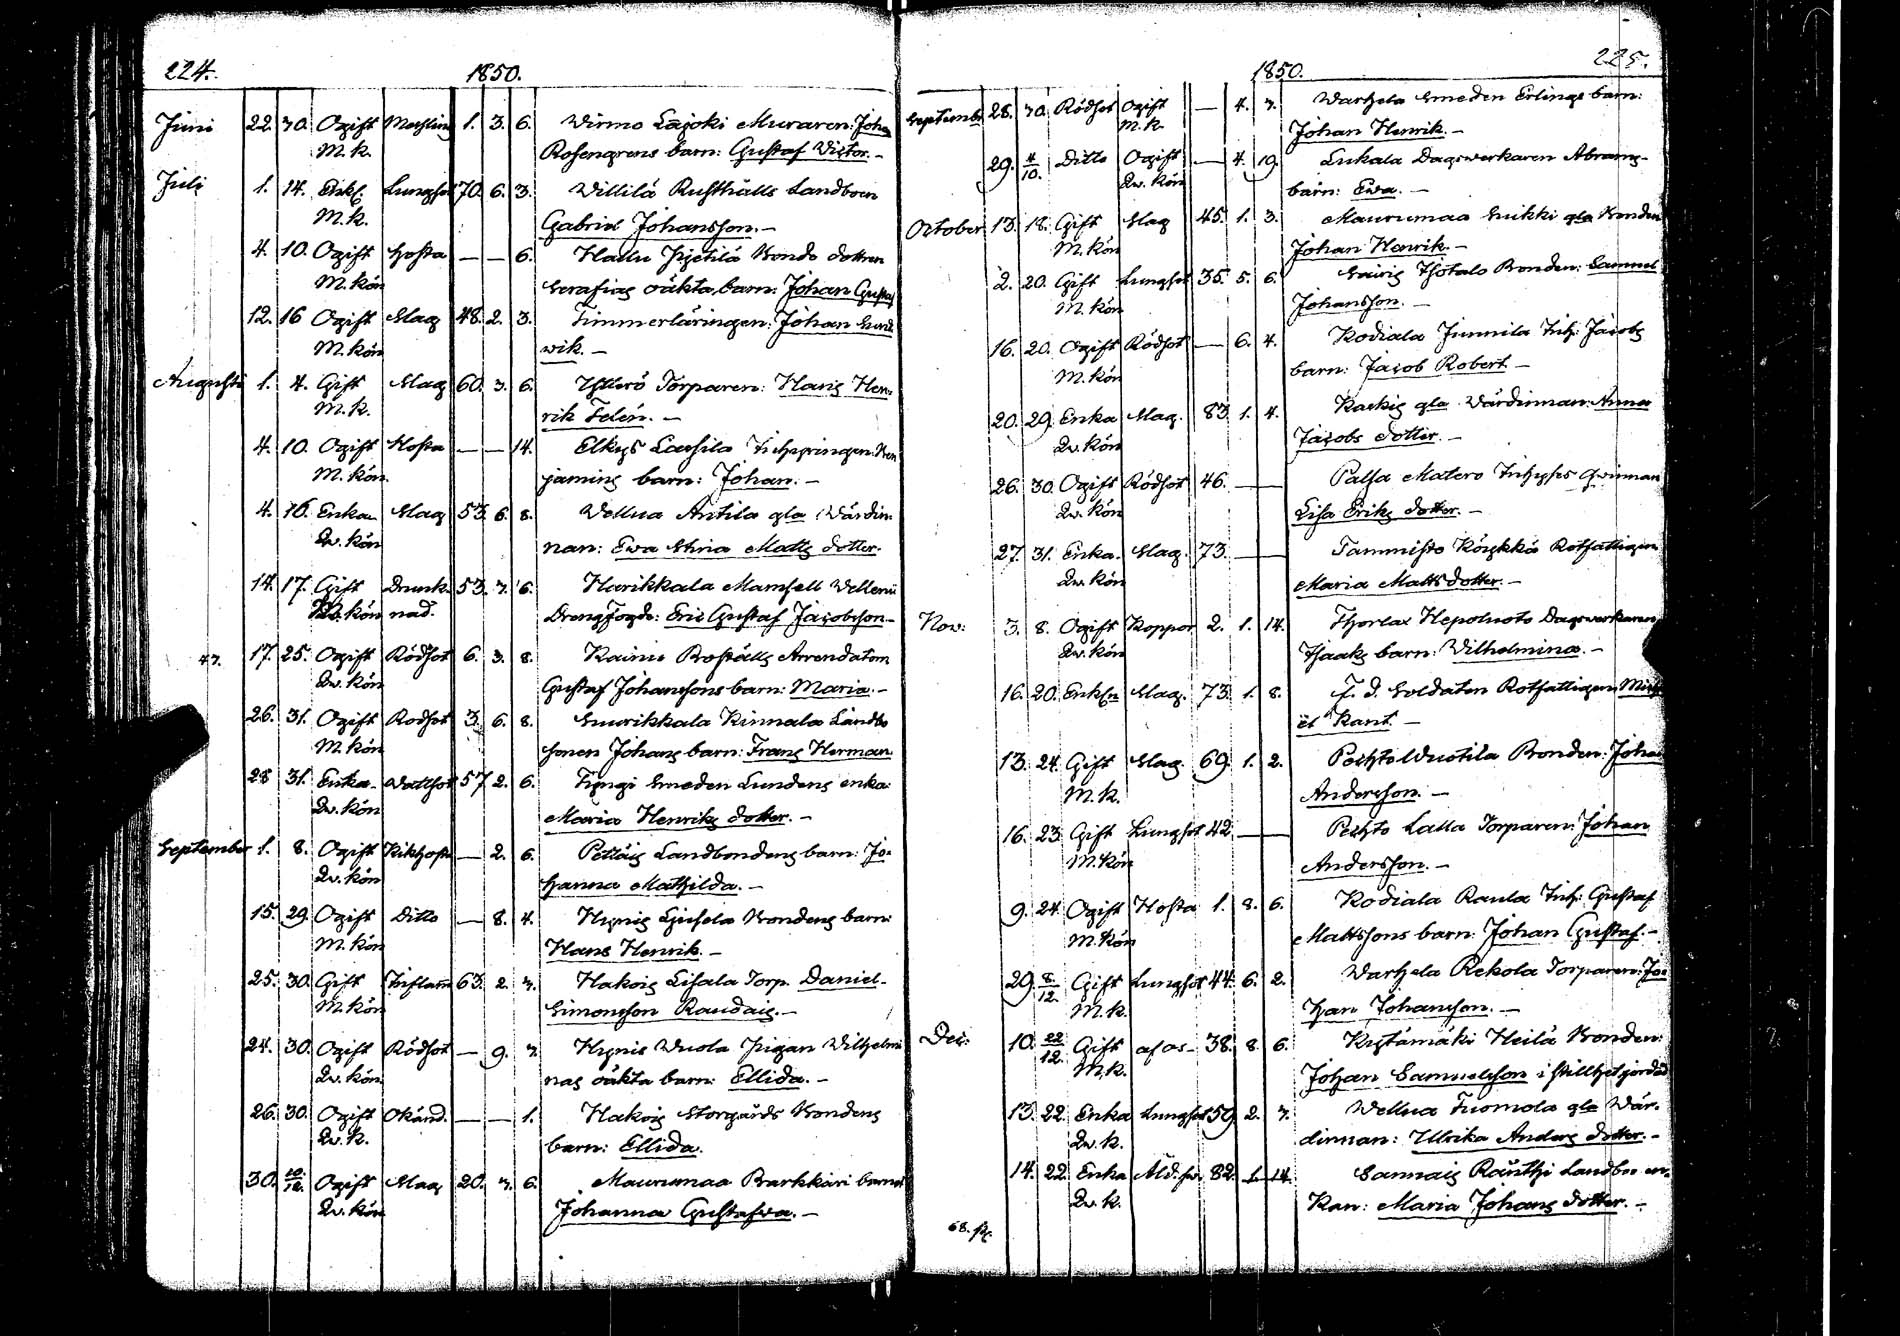 224.
1850.
Juni 22. 30. Ogift Messling 1. 3. 6. Wirmo Lajoki Muraren: Joh:
M. k. Rosengrens barn: Gustaf Victor. –
Juli 1. 14. Enkl. Lungsot 70. 6. 3. Willilä Rusthålls Landboen
M. k. Gabriel Johansson. –
4. 10. Ogift Hosta — — 6. Bonde dottren
M. kön Serafias oäkta barn: Johan Gustaf
12. 16 Ogift Slag 48. 2. 3. Timmerläringen: Johan
M. kön wik. –
Augusti 1. 4. Gift Slag 60. 3. 6. Torparen: Hans Hen-
M. k. rik Felén. –
4. 10. Ogift Hosta — — 14. Elkys Lassila Ben
M. kön jamins barn: Johan. –
4. 10. Enka Slag 53. 6. 8. Wellua Antila gla Wärdin-
Qv. kön nan: Ewa Stina Matts dotter.
14. 17. Gift Drunk- 53. 7. 6. Harikkala Mamsell
kön nad. Drengfogde: Eric Gustaf Jacobsson –
47. 17. 25. Ogift Rödsot 6. 3. 8. Kainu Arrendatorn
Qv. kön Gustaf Johanssons barn: Maria. –
26. 31. Ogift Rödsot 3. 6. 8. Smurikkala Kinnala Landbo
M. kön sonen Johans barn: Frans Herman
28 31. Enka Wattsot 57 2. 6. Smeden Lundens enka:
Qv. kön Maria Henriks dotter. –
September 1. 8. Ogift Kikhosta — 2. 6. Landbondens barn: Jo-
Qv. kön hanna Mathilda. –
15. 29. Ogift Ditto — 8. 4. Hypis Bondens barn:
M. kön Hans Henrik. –
25. 30. Gift Inflam 63. 2. 7. Hakois Lisala Torp. Daniel
M. kön Simonsson Raudais. –
24. 30. Ogift Rödsot — 9. 7. Wuola Pigan Wilhelmi
Qv. kön nas oäkta barn: Ellida. –
26. 30. Ogift Okänd. — — 1. Hakois Storgårds Bondens
Qv. k. barn: Ellida.
30. 10/10. Ogift Slag 20. 7. 6. Maurumaa
Qv. kön Johanna Gustafva. –
225.
1850.
Septemb. 28. 30. Rödsot Ogift — 4. 7. Warhela Smeden Erlings barn:
M. k. Johan Henrik. –
29. 4/10. Ditto Ogift — 4. 19. Lukala Dagswerkaren Abrams
Qv. kön barn: Ewa. –
October 13. 18. Gift Slag 45. 1. 3. Maurumaa Suikki gla Bonden
M. kön Johan Henrik. –
2. 20. Gift Lungsot 35. 5. 6. Bonden: Samuel
M. kön Johansson. –
16. 20. Ogift Rödsot — 6. 4. Kodiala Junnila Inh: Jacobs
M. kön barn: Jacob Robert –
20. 29. Enka Slag. 83. 1. 4. Karkis gla Wärdinnan: Anna
Qv. kön Jacobs dotter. –
26. 30. Ogift Rödsot 46. — Palsa Matero Inhyses qwinnan
Qv. kön Lisa Eriks dotter. –
27. 31. Enka. Slag. 73. — Tammisto Rotfattigen
Qv. kön Maria Mattsdotter. –
Nov: 3. 8. Ogift Koppor 2. 1. 14. Hepoluoto Dagswerkaren
Qv. kön Isaaks barn: Wilhelmina. –
16. 20. Enkln Slag. 73. 1. 8. F. d. Soldaten Rotfattigen Mich
el Kant. –
13. 24. Gift Slag. 69. 1. 2. Bonden: Joha
M. k. Andersson. –
16. 23. Gift Lungsot 42. — Lalla Torparen: Johan
M. kön Andersson. –
9. 24. Ogift Hosta 1. 8. 6. Kodiala Raula Inh: Gustaf
M. kön Mattssons barn: Johan Gustaf. –
29. 8/12. Gift Lungsot 44. 6. 2. Warhela Rekola Torparen: Jo-
M. k. han Johansson. –
Dec: 10. 22/12. Gift af os – 38. 8. 6. Heilä Bonden:
M. k. Johan Samuelsson i stillhet jordad
13. 22. Enka Lungsot 59. 2. 7. Wellua Tuomola gla Wär-
Qv. k. dinnan: Ulrika Anders dotter. –
14. 22. Enka Åld.sv. 82. 1. 14. Sannais Landbo en-
Qv. k. kan: Maria Johans dotter. –
68.